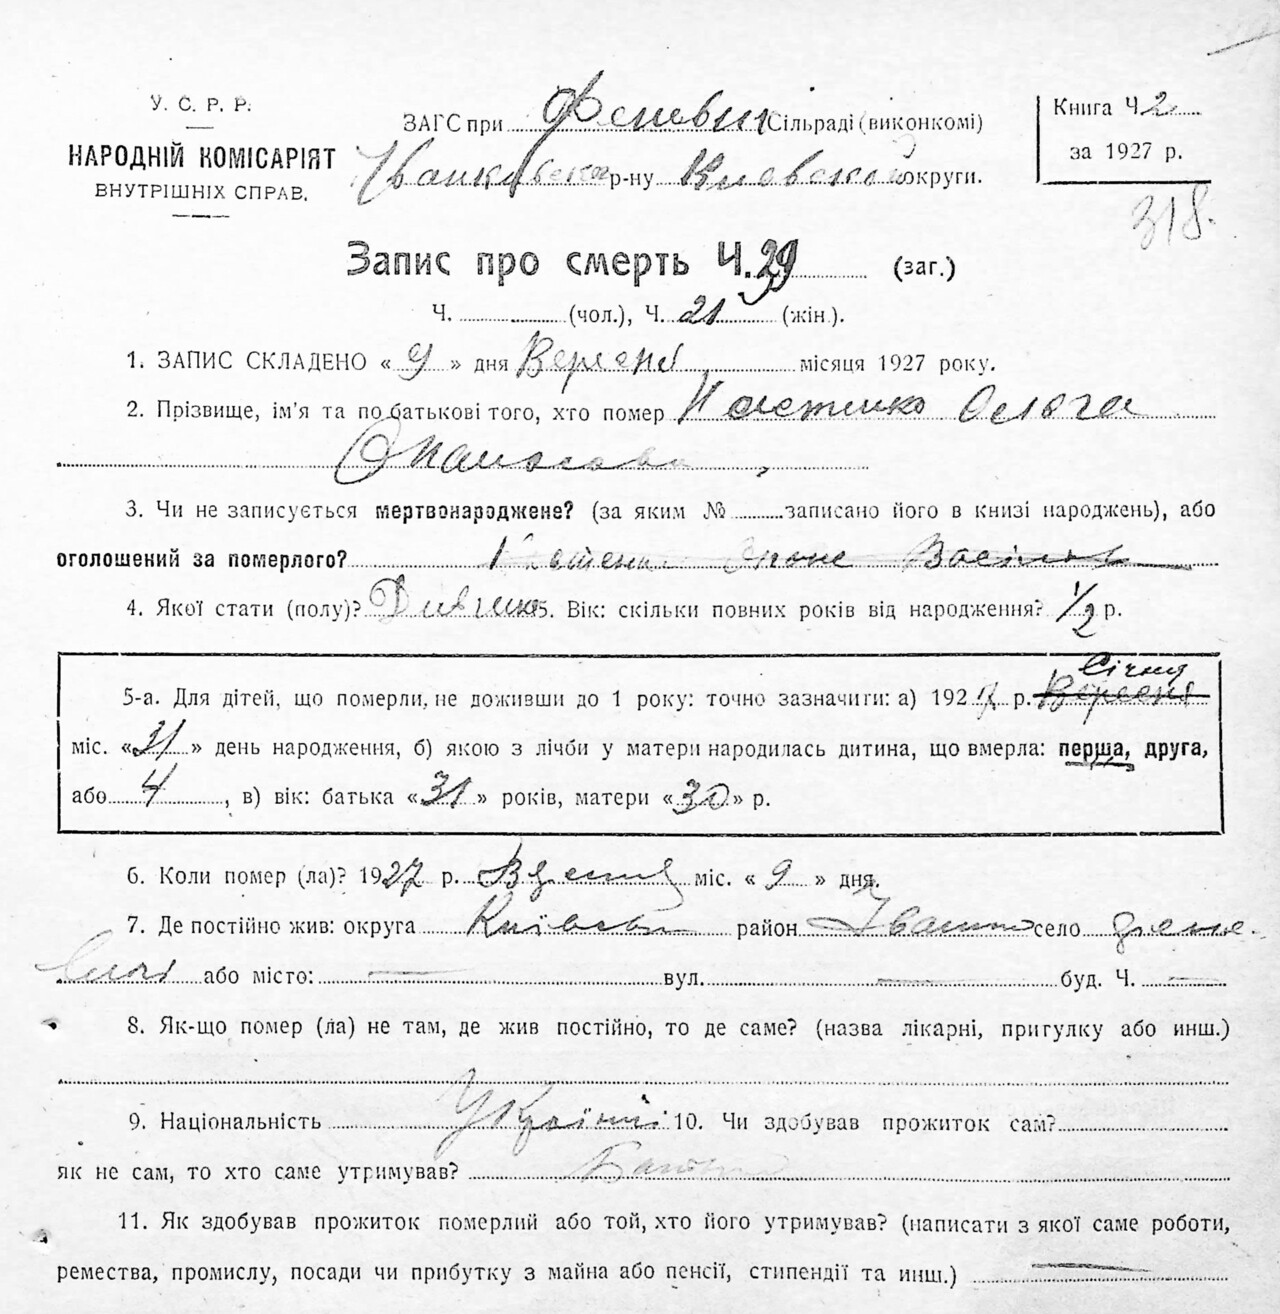 У. С. Р. Р.
НАРОДНІЙ КОМІСАРІЯТ
ВНУТРІШНІХ СПРАВ.
ЗАГС при Сільраді (виконкомі)
р-ну округи.
Книга Ч 2
за 1927 р.
318.
Запис про смерть Ч. 29 (заг.)
Ч. (чол.), Ч. 21 (жін.).
1. ЗАПИС СКЛАДЕНО « 9 » дня місяця 1927 року.
2. Прізвище, ім'я та по батькові того, хто помер Ольга
3. Чи не записується мертвонароджене? (за яким № записано його в книзі народжень), або
оголошений за померлого?
4. Якої стати (полу)? 5. Вік: скільки повних років від народження? 1/2 р.
5-а. Для дітей, що померли, не доживши до 1 року: точно зазначити: а) 1927 р. Січня
міс. « 31 » день народження, б) якою з лічби у матери народилась дитина, що вмерла: перша, друга,
або 4, в) вік: батька « 31 » років, матери « 30 » р.
6. Коли помер (ла)? 1927 р. міс. « 9 » дня.
7. Де постійно жив: округа район село
або місто: — вул. — буд. Ч. —
8. Як-що помер (ла) не там, де жив постійно, то де саме? (назва лікарні, пригулку або инш.)
9. Національність 10. Чи здобував прожиток сам?
як не сам, то хто саме утримував?
11. Як здобував прожиток померлий або той, хто його утримував? (написати з якої саме роботи,
ремества, промислу, посади чи прибутку з майна або пенсії, стипендії та инш.) —